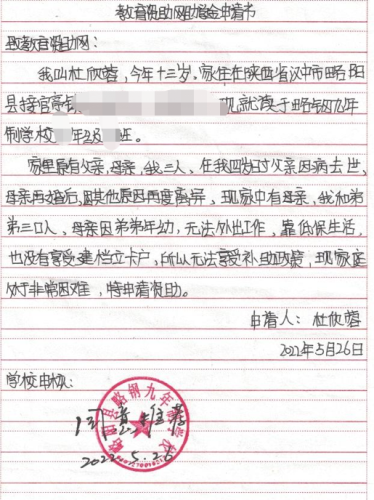 教育资助网助学金申请书
致教育资助网：
我叫杜欣蓉，今年十三岁。家住在陕西省汉中市略阳
县接官亭镇 现就读于略钢九年
制学校 年2.8 班。
家里原有父亲，母亲，我三人，在我四岁时父亲因病去世，
母亲再婚后，因其他原因再度离异，现家中有母亲、我和弟
弟三口人，母亲因弟弟年幼，无法外出工作，靠低保生活，
也没有享受建档立卡户，所以无法享受补助政策，现家庭
处于非常困难，特申请资助。
申请人：杜欣蓉
2022年5月26日
学校审核：
略阳县略钢九年制学校
同意
2022.5.26